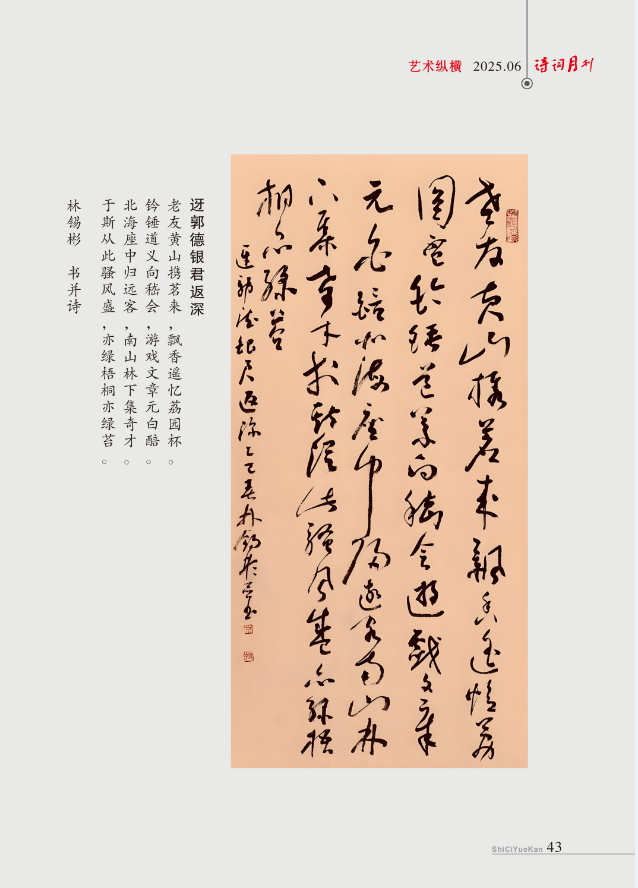 艺术纵横 2025.06 诗词月刊
老友黄山携茗来飘香遥忆荔
园杯钤锤道义向嵇会游戏文章
元白醅北海座中归远客南山林
下集奇才于斯从此骚风盛亦绿梧
桐亦绿苔
迓郭德银君返深乙巳春林锡彬
迓郭德银君返深
老友黄山携茗来，飘香遥忆荔园杯。
钤锤道义向嵇会，游戏文章元白醅。
北海座中归远客，南山林下集奇才。
于斯从此骚风盛，亦绿梧桐亦绿苔。
林锡彬 书并诗
ShiCiYueKan 43